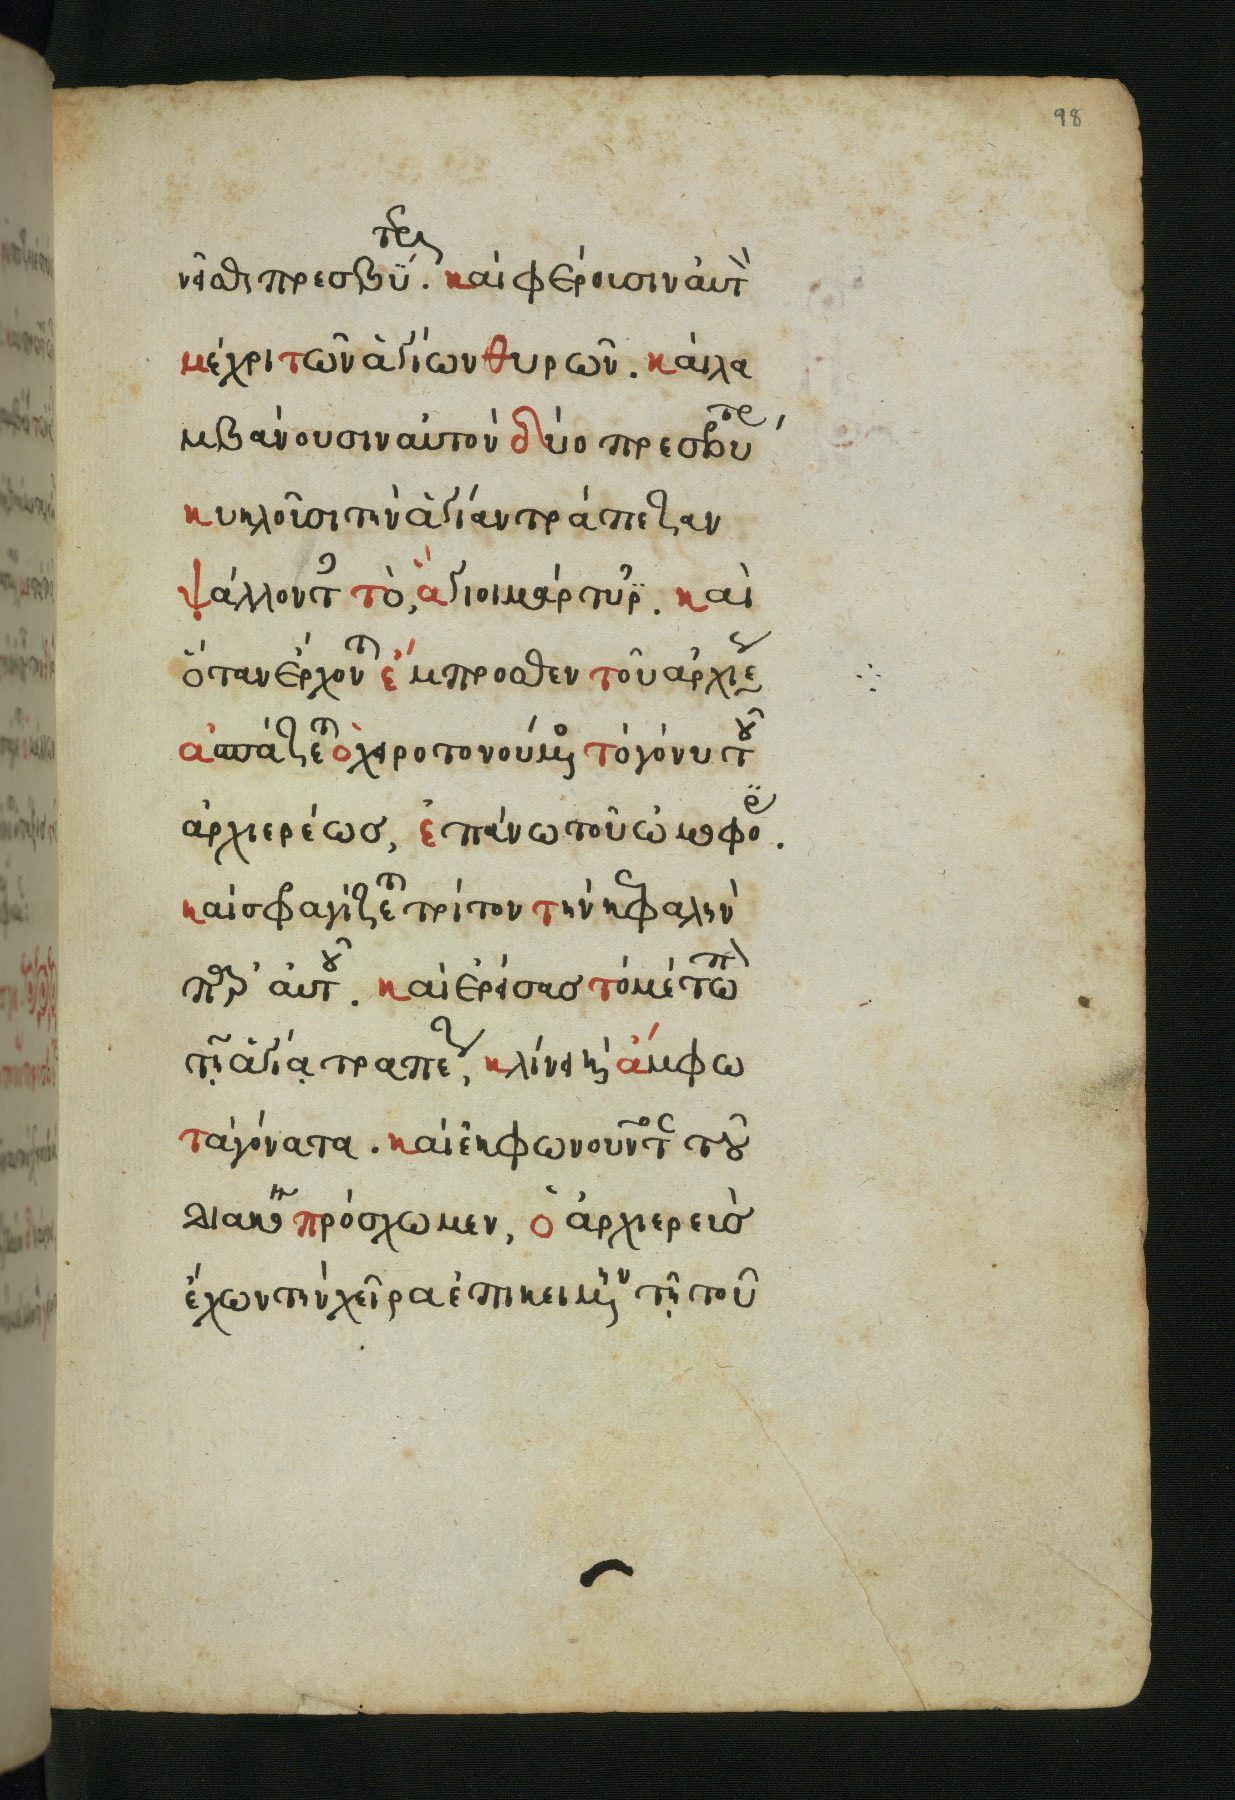 98
νέσθι πρεσβϋτρ. καὶ φέρουσιν ἀυτ
μέχρι τῶν ἁγίων θυρῶν. κάιλα
μβάνουσιν ἀυτὸν δύο πρεσβυτρ
κυκλοῦσι τὴν ἁγίαν τράπεζαν
ψάλλοντ τὸ, ἅγιοι μάρτυρ. καὶ
ὅταν ἔρχοντ ἔμπροσθεν τοῦ ἀρχιε
ἀσπάζετ ὁ χειροτονούμος τὸ γόνυ τοῦ
ἀρχιερέως, ἐπάνω τοῦ ὠμοφορ.
καὶ σφραγίζετ τρίτον τὴν κεφαλὴν
ἀυτοῦ. καὶ ἐρείσας τὸ μέτωπ
τῇ ἁγίᾳ τραπεζ, κλίνει καὶ ἄμφω
τὰ γόνατα. καὶ ἐκφωνοῦντος τοῦ
Διακο πρόσχωμεν, ὁ ἀρχιερεὺς
ἔχων τὴν χεῖρα ἐπικειμένην τῇ τοῦ